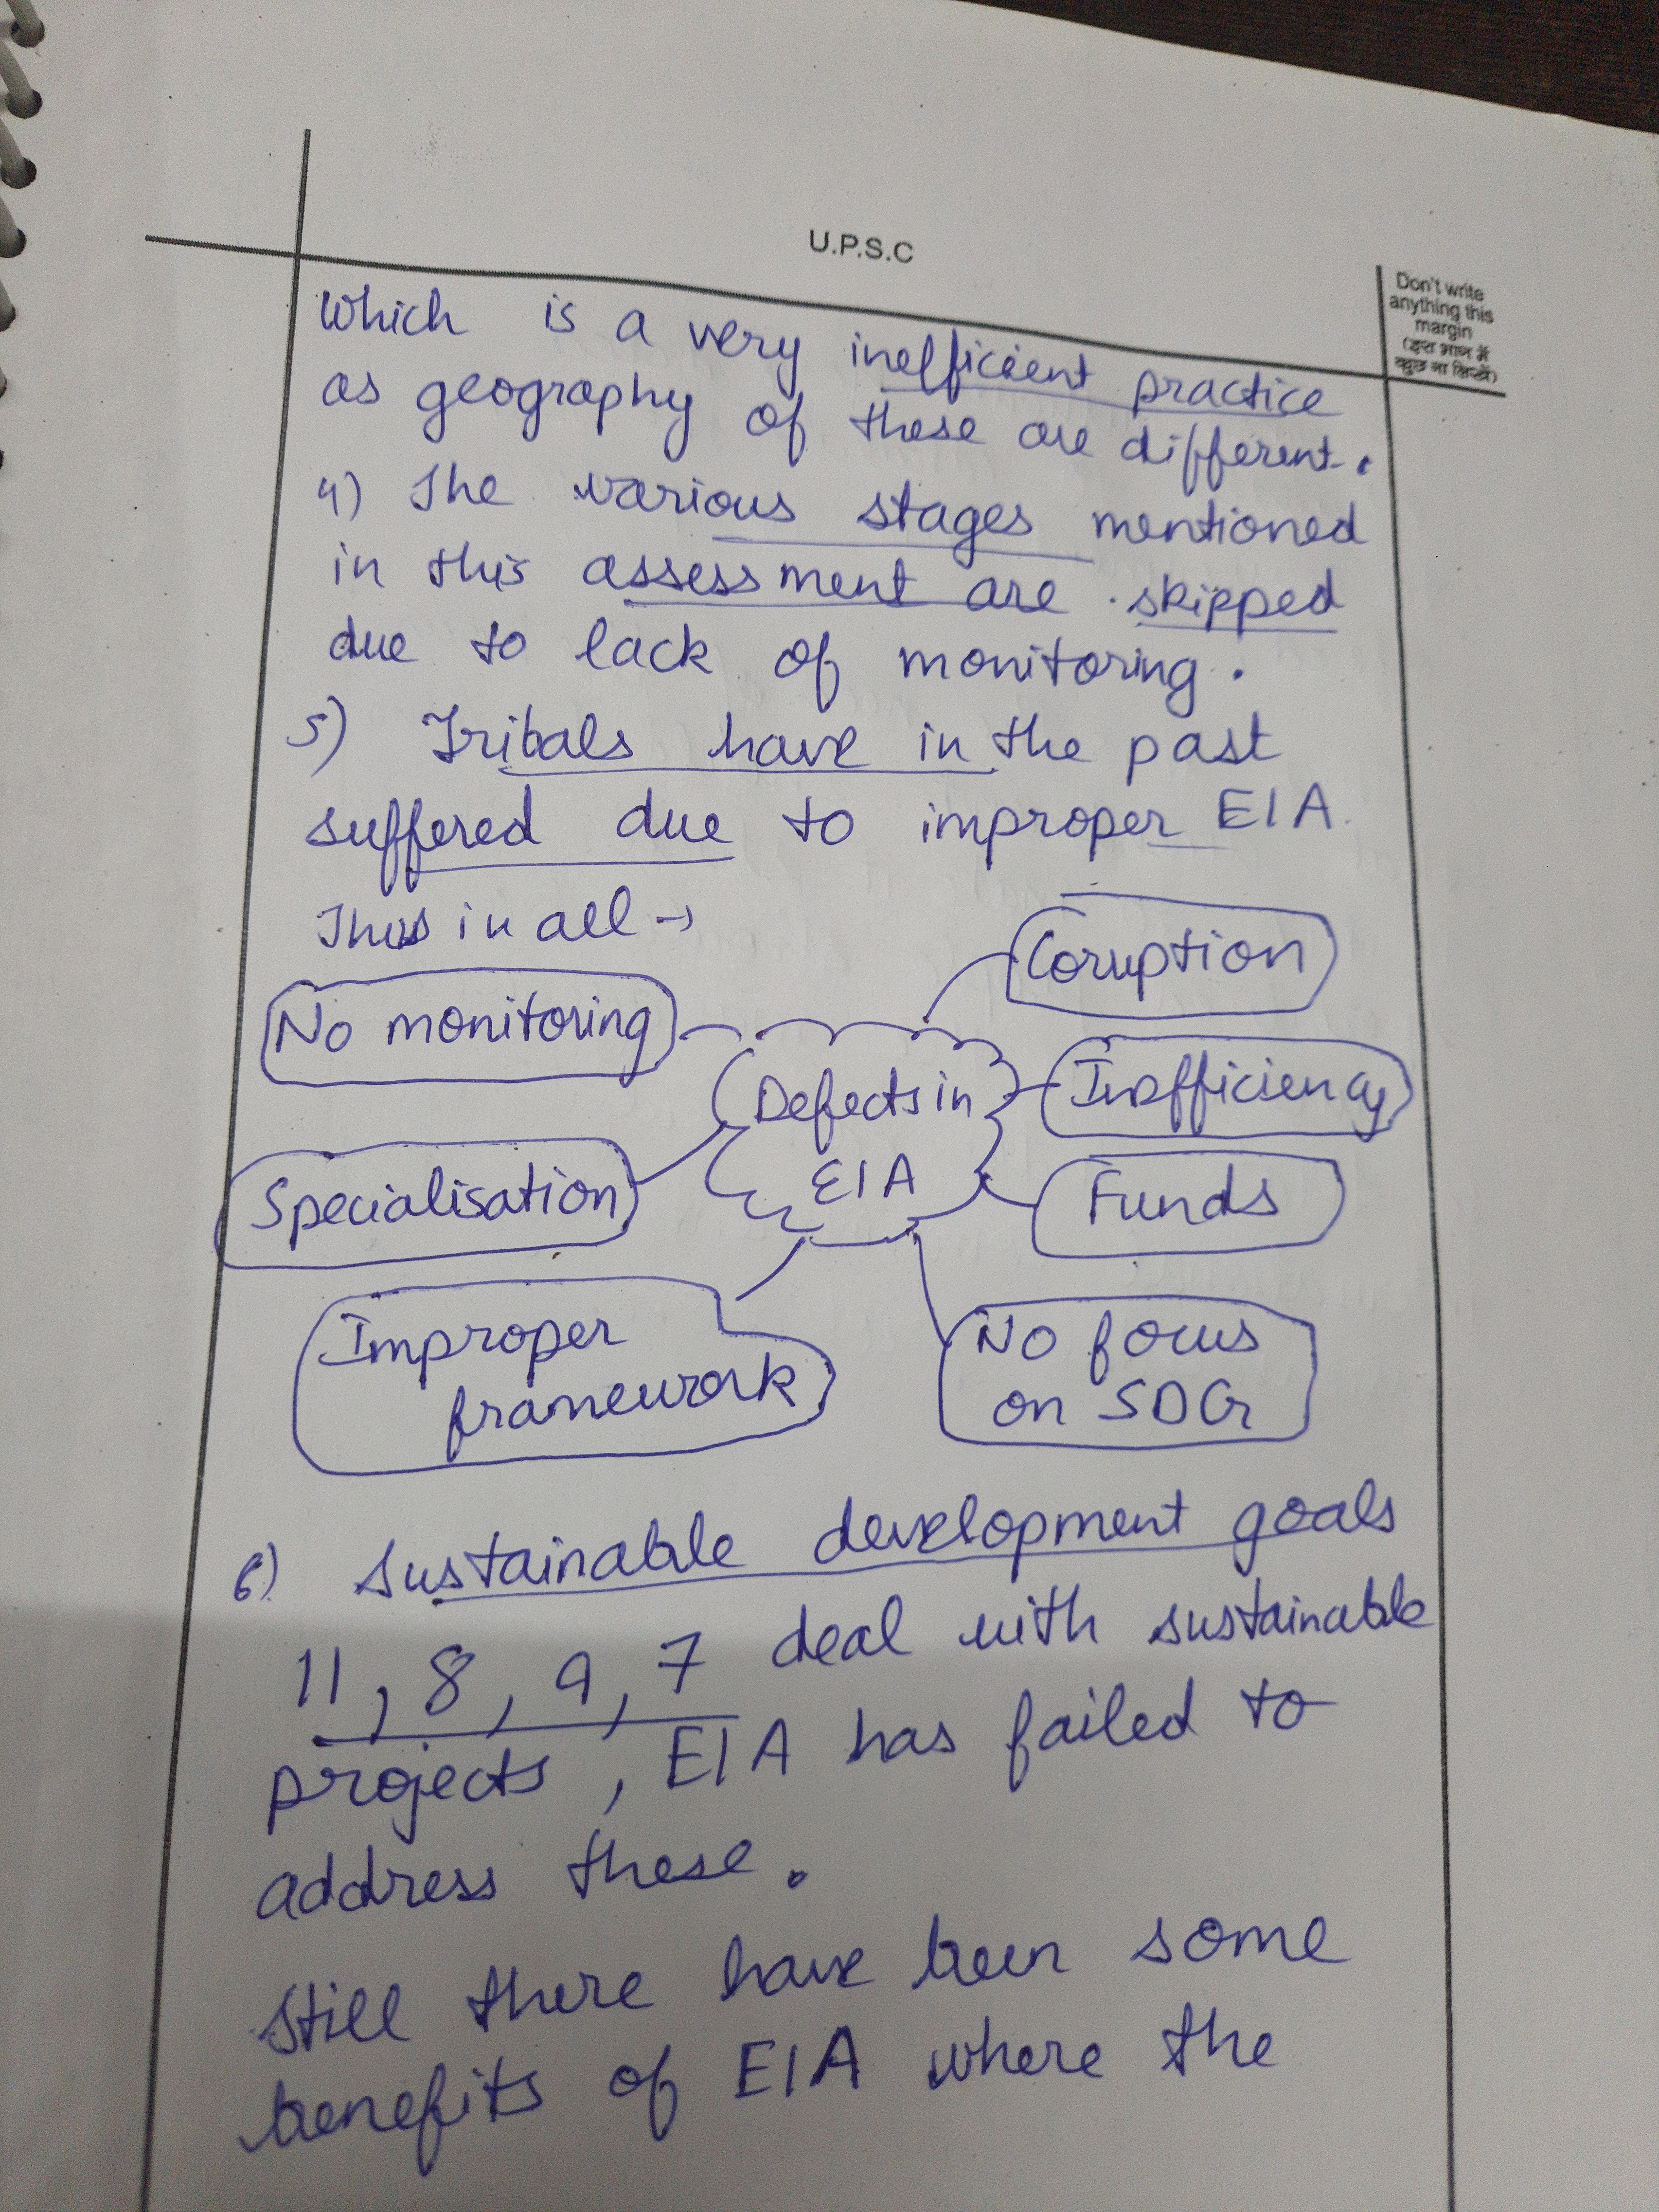 U.P.S.C
Don't write
anything this
margin
(इस भाग में
कुछ ना लिखें)
which is a very inefficient practice
as geography of these are different.
4) The various stages mentioned
in this assessment are skipped
due to lack of monitoring.
5) Tribals have in the past
suffered due to improper EIA.
Thus in all →
Coruption
No monitoring
Defects in
EIA
Inefficiency
Specialisation
Funds
Improper
framework
No focus
on SDG
6) Sustainable development goals
11, 8, 9, 7 deal with sustainable
projects, EIA has failed to
address these.
Still there have been some
benefits of EIA where the